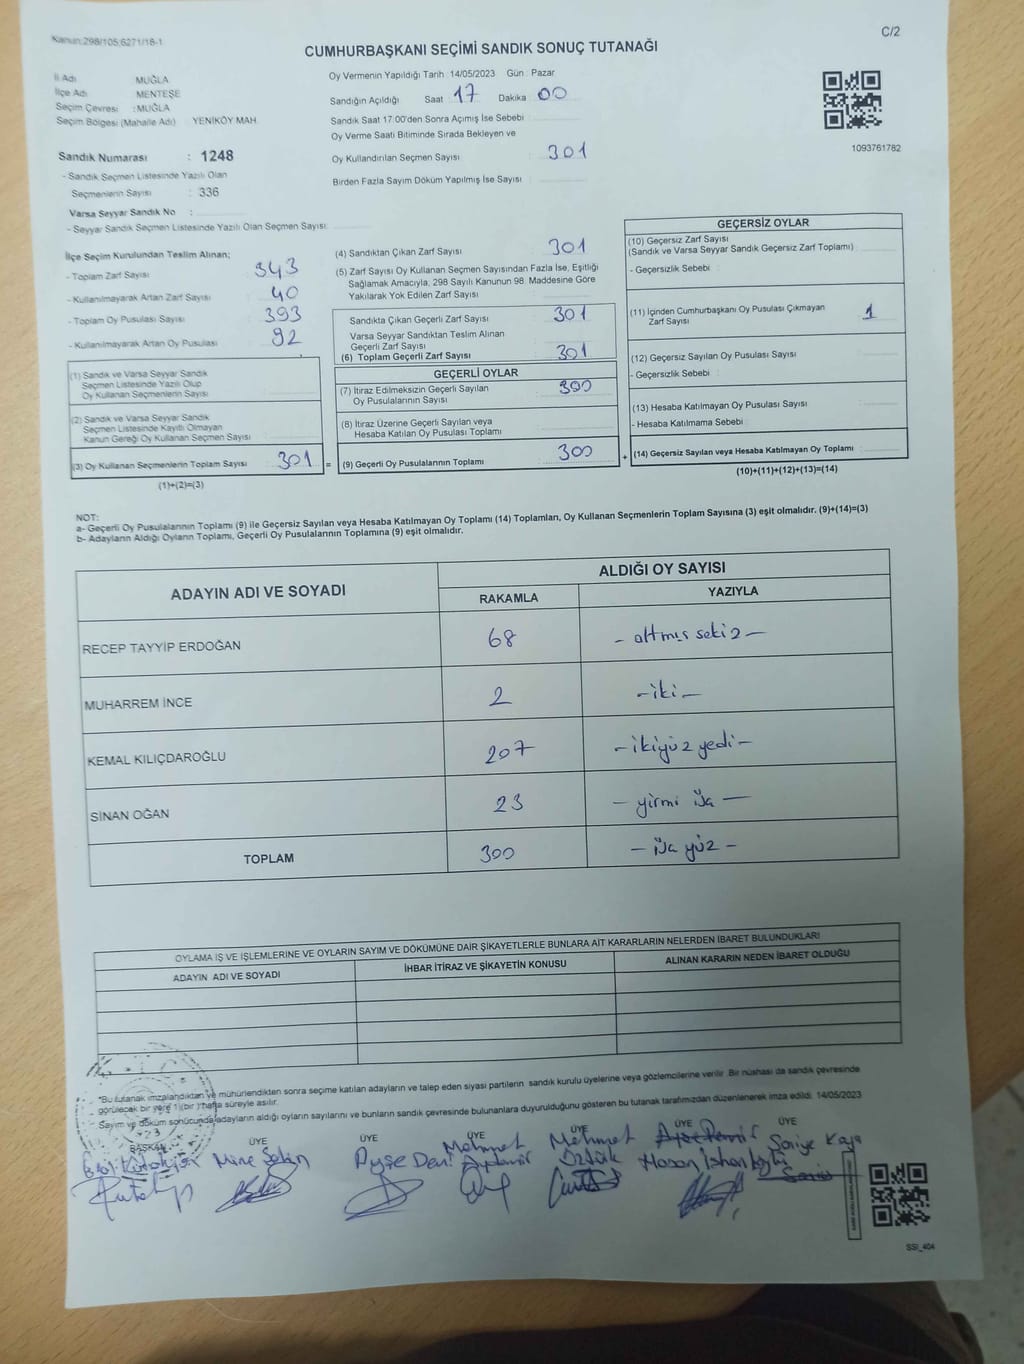 Kanun:298/105;6271/18-1
C/2
CUMHURBAŞKANI SEÇİMİ SANDIK SONUÇ TUTANAĞI
İl Adı MUĞLA
İlçe Adı MENTEŞE
Seçim Çevresi :MUĞLA
Seçim Bölgesi (Mahalle Adı) YENİKÖY MAH.
Sandık Numarası : 1248
- Sandık Seçmen Listesinde Yazılı Olan
Seçmenlerin Sayısı : 336
Varsa Seyyar Sandık No :
- Seyyar Sandık Seçmen Listesinde Yazılı Olan Seçmen Sayısı:
Oy Vermenin Yapıldığı Tarih :14/05/2023 Gün : Pazar
Sandığın Açıldığı Saat 17 Dakika 00
Sandık Saat 17:00'den Sonra Açılmış İse Sebebi :
Oy Verme Saati Bitiminde Sırada Bekleyen ve
Oy Kullandırılan Seçmen Sayısı : 301
Birden Fazla Sayım Döküm Yapılmış İse Sayısı :
1093761782
İlçe Seçim Kurulundan Teslim Alınan;
- Toplam Zarf Sayısı : 343
- Kullanılmayarak Artan Zarf Sayısı : 40
- Toplam Oy Pusulası Sayısı : 393
- Kullanılmayarak Artan Oy Pusulası : 92
(1) Sandık ve Varsa Seyyar Sandık
Seçmen Listesinde Yazılı Olup
Oy Kullanan Seçmenlerin Sayısı :
(2) Sandık ve Varsa Seyyar Sandık
Seçmen Listesinde Kayıtlı Olmayan
Kanun Gereği Oy Kullanan Seçmen Sayısı :
(3) Oy Kullanan Seçmenlerin Toplam Sayısı : 301 =
(1)+(2)=(3)
(4) Sandıktan Çıkan Zarf Sayısı : 301
(5) Zarf Sayısı Oy Kullanan Seçmen Sayısından Fazla İse, Eşitliği
Sağlamak Amacıyla; 298 Sayılı Kanunun 98. Maddesine Göre
Yakılarak Yok Edilen Zarf Sayısı :
Sandıkta Çıkan Geçerli Zarf Sayısı : 301
Varsa Seyyar Sandıktan Teslim Alınan
Geçerli Zarf Sayısı :
(6) Toplam Geçerli Zarf Sayısı : 301
GEÇERLİ OYLAR
(7) İtiraz Edilmeksizin Geçerli Sayılan
Oy Pusulalarının Sayısı : 300
(8) İtiraz Üzerine Geçerli Sayılan veya
Hesaba Katılan Oy Pusulası Toplamı :
(9) Geçerli Oy Pusulalarının Toplamı : 300 +
GEÇERSİZ OYLAR
(10) Geçersiz Zarf Sayısı
(Sandık ve Varsa Seyyar Sandık Geçersiz Zarf Toplamı) :
- Geçersizlik Sebebi :
(11) İçinden Cumhurbaşkanı Oy Pusulası Çıkmayan
Zarf Sayısı : 1
(12) Geçersiz Sayılan Oy Pusulası Sayısı :
- Geçersizlik Sebebi :
(13) Hesaba Katılmayan Oy Pusulası Sayısı :
- Hesaba Katılmama Sebebi :
(14) Geçersiz Sayılan veya Hesaba Katılmayan Oy Toplamı :
(10)+(11)+(12)+(13)=(14)
NOT:
a- Geçerli Oy Pusulalarının Toplamı (9) ile Geçersiz Sayılan veya Hesaba Katılmayan Oy Toplamı (14) Toplamları, Oy Kullanan Seçmenlerin Toplam Sayısına (3) eşit olmalıdır. (9)+(14)=(3)
b- Adayların Aldığı Oyların Toplamı, Geçerli Oy Pusulalarının Toplamına (9) eşit olmalıdır.
ADAYIN ADI VE SOYADI ALDIĞI OY SAYISI
RAKAMLA YAZIYLA
RECEP TAYYİP ERDOĞAN 68 - altmış sekiz -
MUHARREM İNCE 2 - iki -
KEMAL KILIÇDAROĞLU 207 - ikiyüz yedi -
SİNAN OĞAN 23 - yirmi üç -
TOPLAM 300 - üç yüz -
OYLAMA İŞ VE İŞLEMLERİNE VE OYLARIN SAYIM VE DÖKÜMÜNE DAİR ŞİKAYETLERLE BUNLARA AİT KARARLARIN NELERDEN İBARET BULUNDUKLARI
ADAYIN ADI VE SOYADI İHBAR İTİRAZ VE ŞİKAYETİN KONUSU ALINAN KARARIN NEDEN İBARET OLDUĞU
*Bu tutanak imzalandıktan ve mühürlendikten sonra seçime katılan adayların ve talep eden siyasi partilerin sandık kurulu üyelerine veya gözlemcilerine verilir. Bir nüshası da sandık çevresinde
görülecek bir yere 1 (bir) hafta süreyle asılır.
Sayım ve döküm sonucunda adayların aldığı oyların sayılarını ve bunların sandık çevresinde bulunanlara duyurulduğunu gösteren bu tutanak tarafımızdan düzenlenerek imza edildi. 14/05/2023
BAŞKAN ÜYE ÜYE ÜYE ÜYE ÜYE ÜYE
Mine Şekin Ayşe Mehmet Mehmet Öztürk Hasan Saniye Kaya
SSİ_404